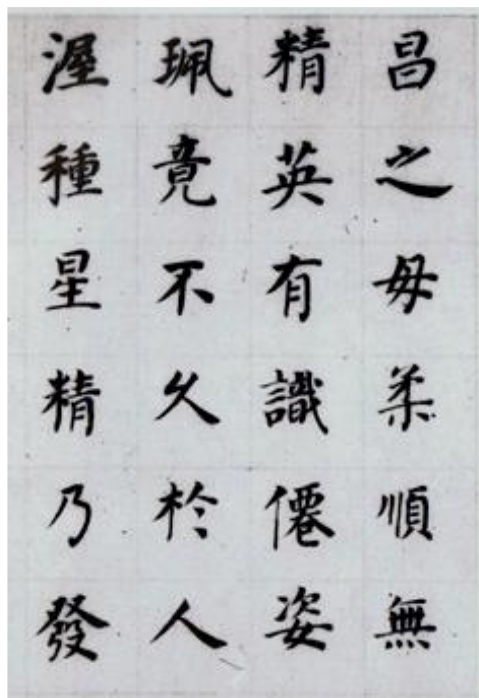 昌之母柔順無
精英有識僊姿
珮竟不久於人
渥種星精乃發